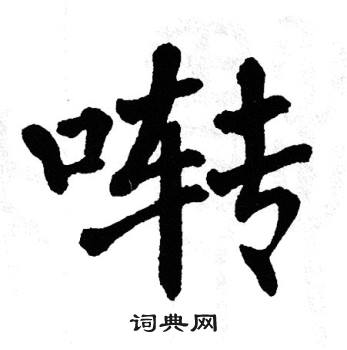 啭
词典网